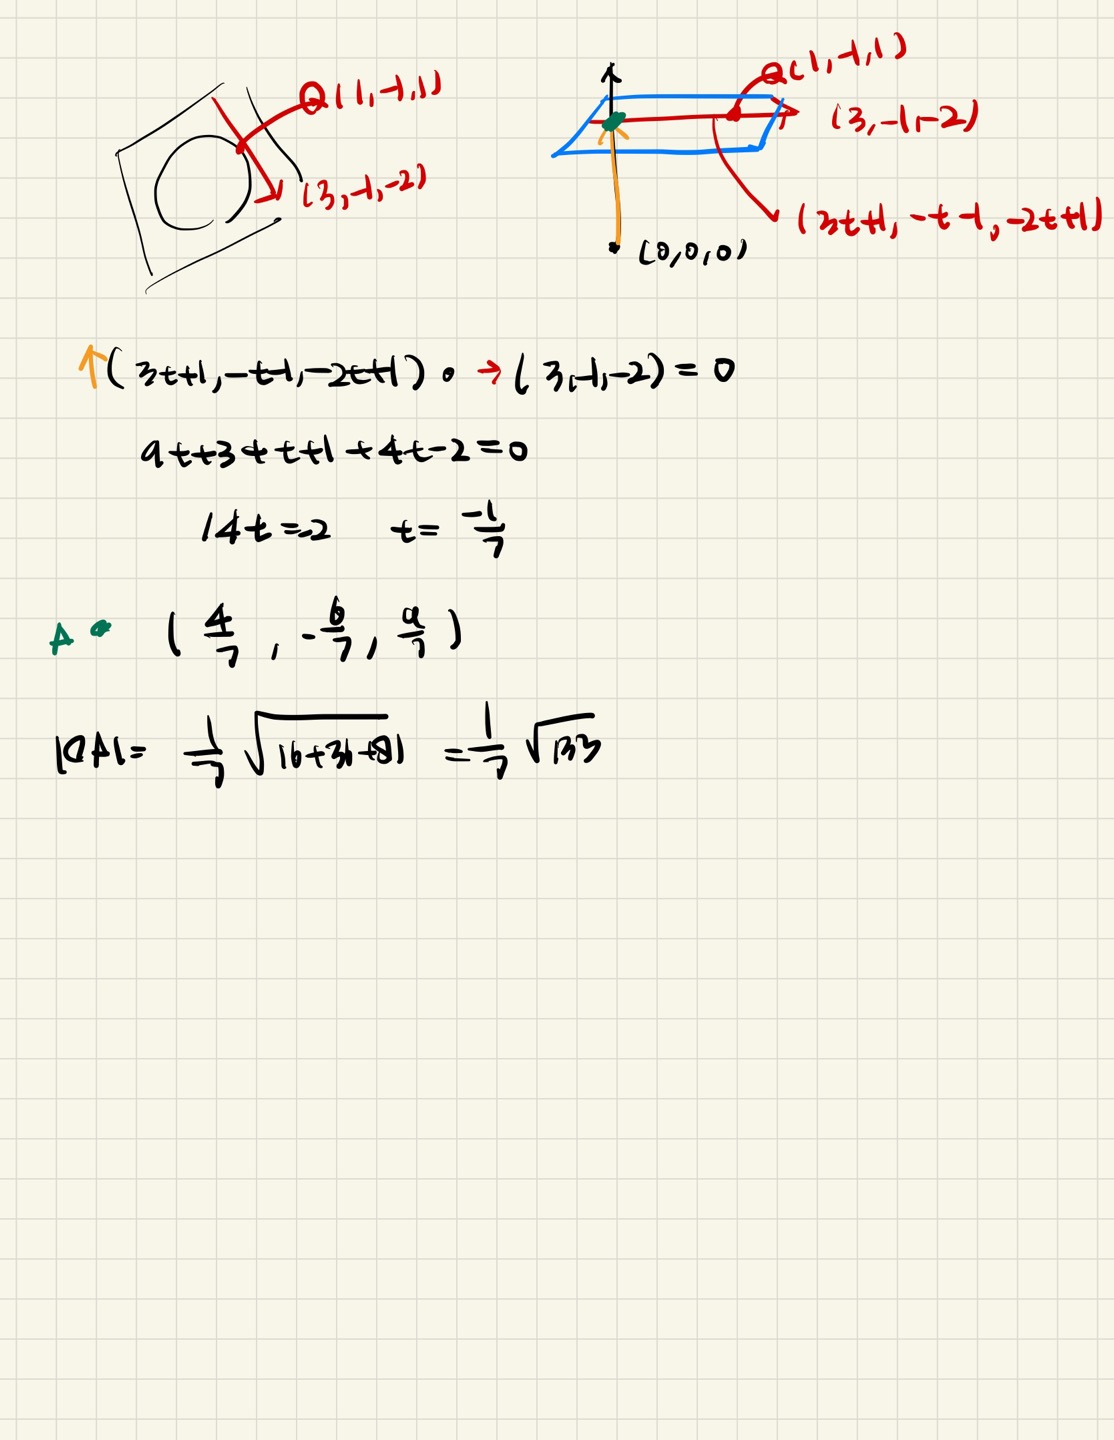 Q(1,-1,1)
(3,-1,-2)
Q(1,-1,1)
(3,-1,-2)
(3t+1, -t-1, -2t+1)
(0,0,0)
↑(3t+1,-t-1,-2t+1) • →(3,-1,-2)=0
9t+3+t+1+4t-2=0
14t=-2 t= -1/7
A • (4/7, -6/7, 9/7)
|OA|= 1/7 √(16+36+81) = 1/7 √133